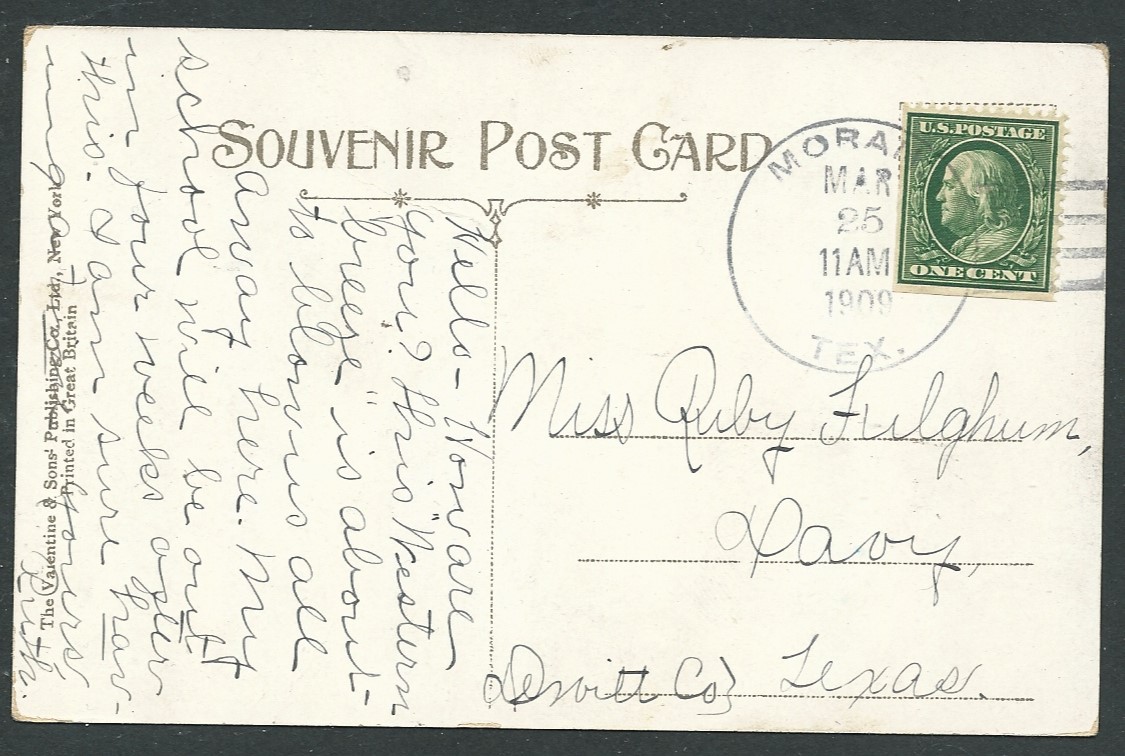 SOUVENIR POST CARD
MORAN
MAR
25
11AM
1909
TEX.
U.S.POSTAGE
ONE CENT
Miss Ruby Fulghum,
Davy,
Dewitt Co} Texas.
Hello - How are
you? This "Western
breeze" is about
to blow us all
away here. My
school will be out
in four weeks after
this. I am sure hav-
ing
Yours,
Ruth.
The Valentine & Sons' Publishing Co., Ltd., New York
Printed in Great Britain